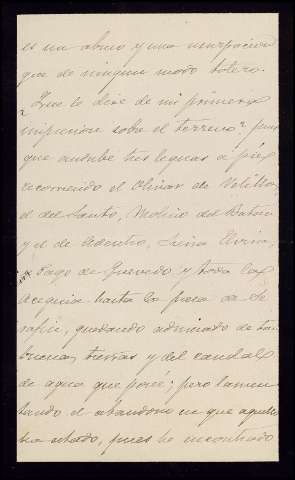 es un abuso y una usurpacion
que de ningun modo tolero.
¿Que le diré de mi primera
impresion sobre el terreno? pues
que anduve tres leguas a pié
recorriendo el Olivar de
el del Santo, Molino del Batan
y el de Adentro, Elvira,
Pago de Quevedo y toda la
Acequia hasta la presa de
quedando admirado de tan
buenas tierras y del caudal
de agua que posée; pero lamen
tando el abandono en que aquello
ha estado, pues he encontrado